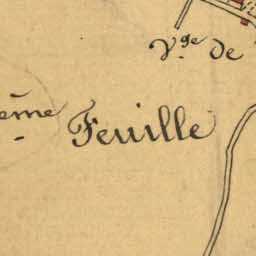 V.ge de
ème Feuille